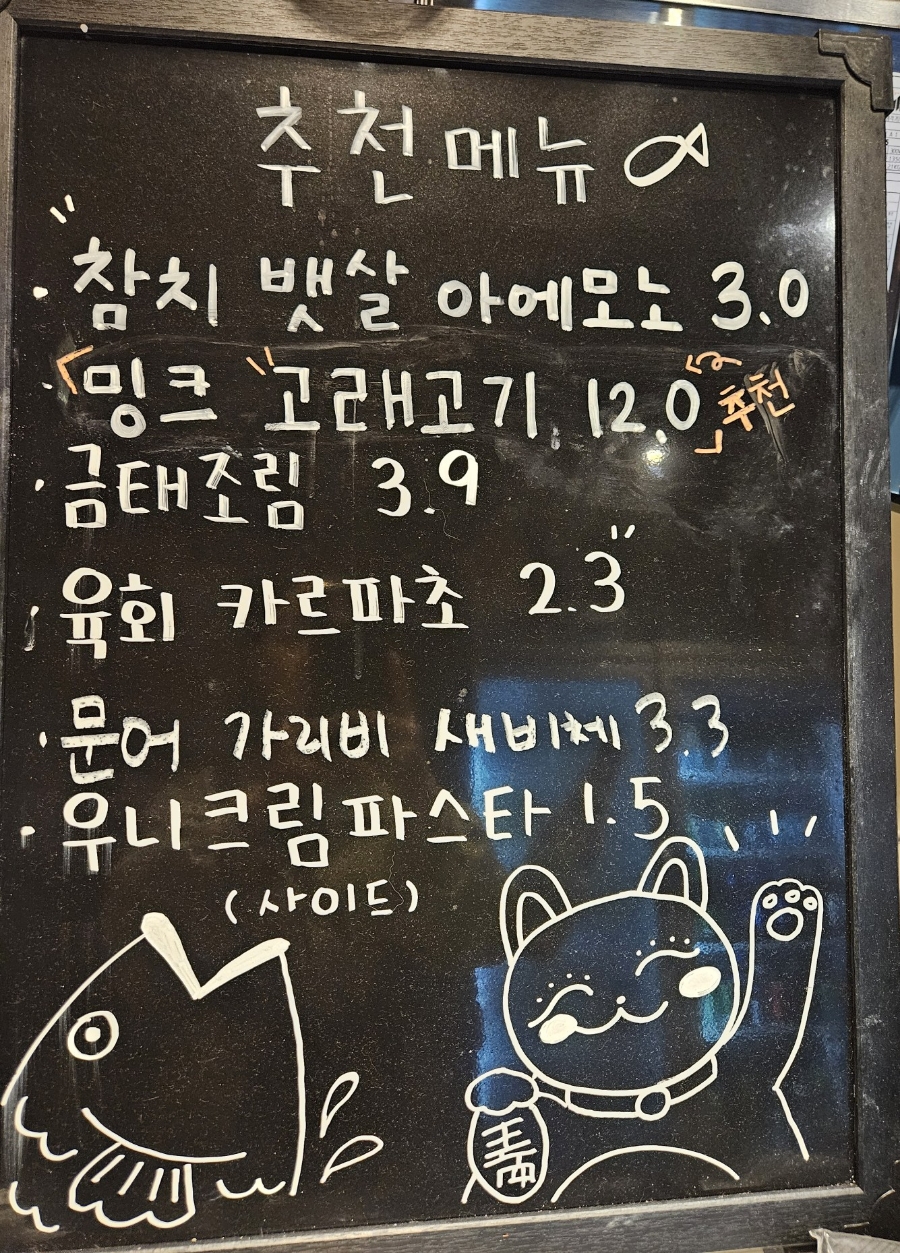 추천메뉴
· 참치 뱃살 아에모노 3.0
· 「밍크 고래고기 12.0」 추천
· 금태조림 3.9
· 육회 카르파초 2.3
· 문어 가리비 새비체 3.3
· 우니크림파스타 1.5
(사이드)